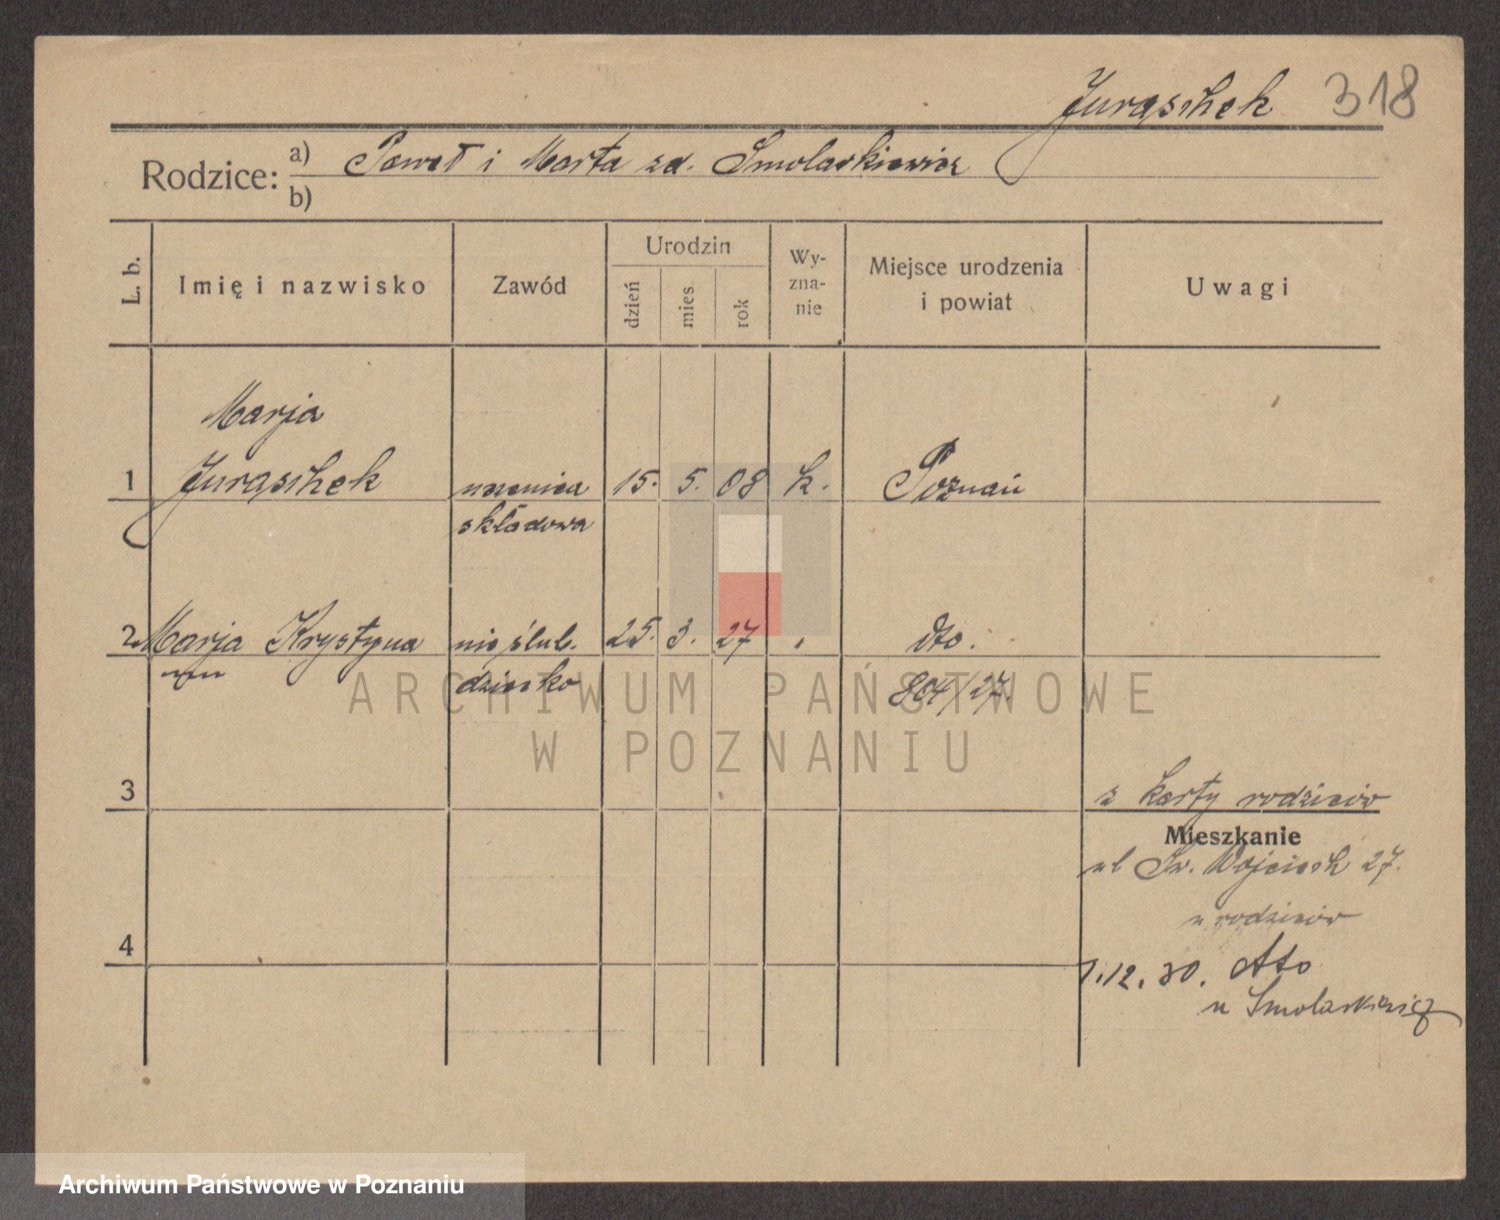 Jurąschek 318
Rodzice: a) Paweł i Marta zd. Smolarkiewicz
b)
L. b. Imię i nazwisko Zawód Urodzin dzień mies. rok Wyznanie Miejsce urodzenia i powiat Uwagi
Marja
1 Jurąschek uczenica 15. 5. 08 k. Poznań
składowa
2 Marja Krystyna nieślub. 25. 3. 27 " dto.
dziecko 804/27.
3 z karty rodziców
Mieszkanie
ul Św. Wojciech 27.
u rodziców
4
1.12.30. dto
u Smolarkiewicz
ARCHIWUM PAŃSTWOWE
W POZNANIU
Archiwum Państwowe w Poznaniu